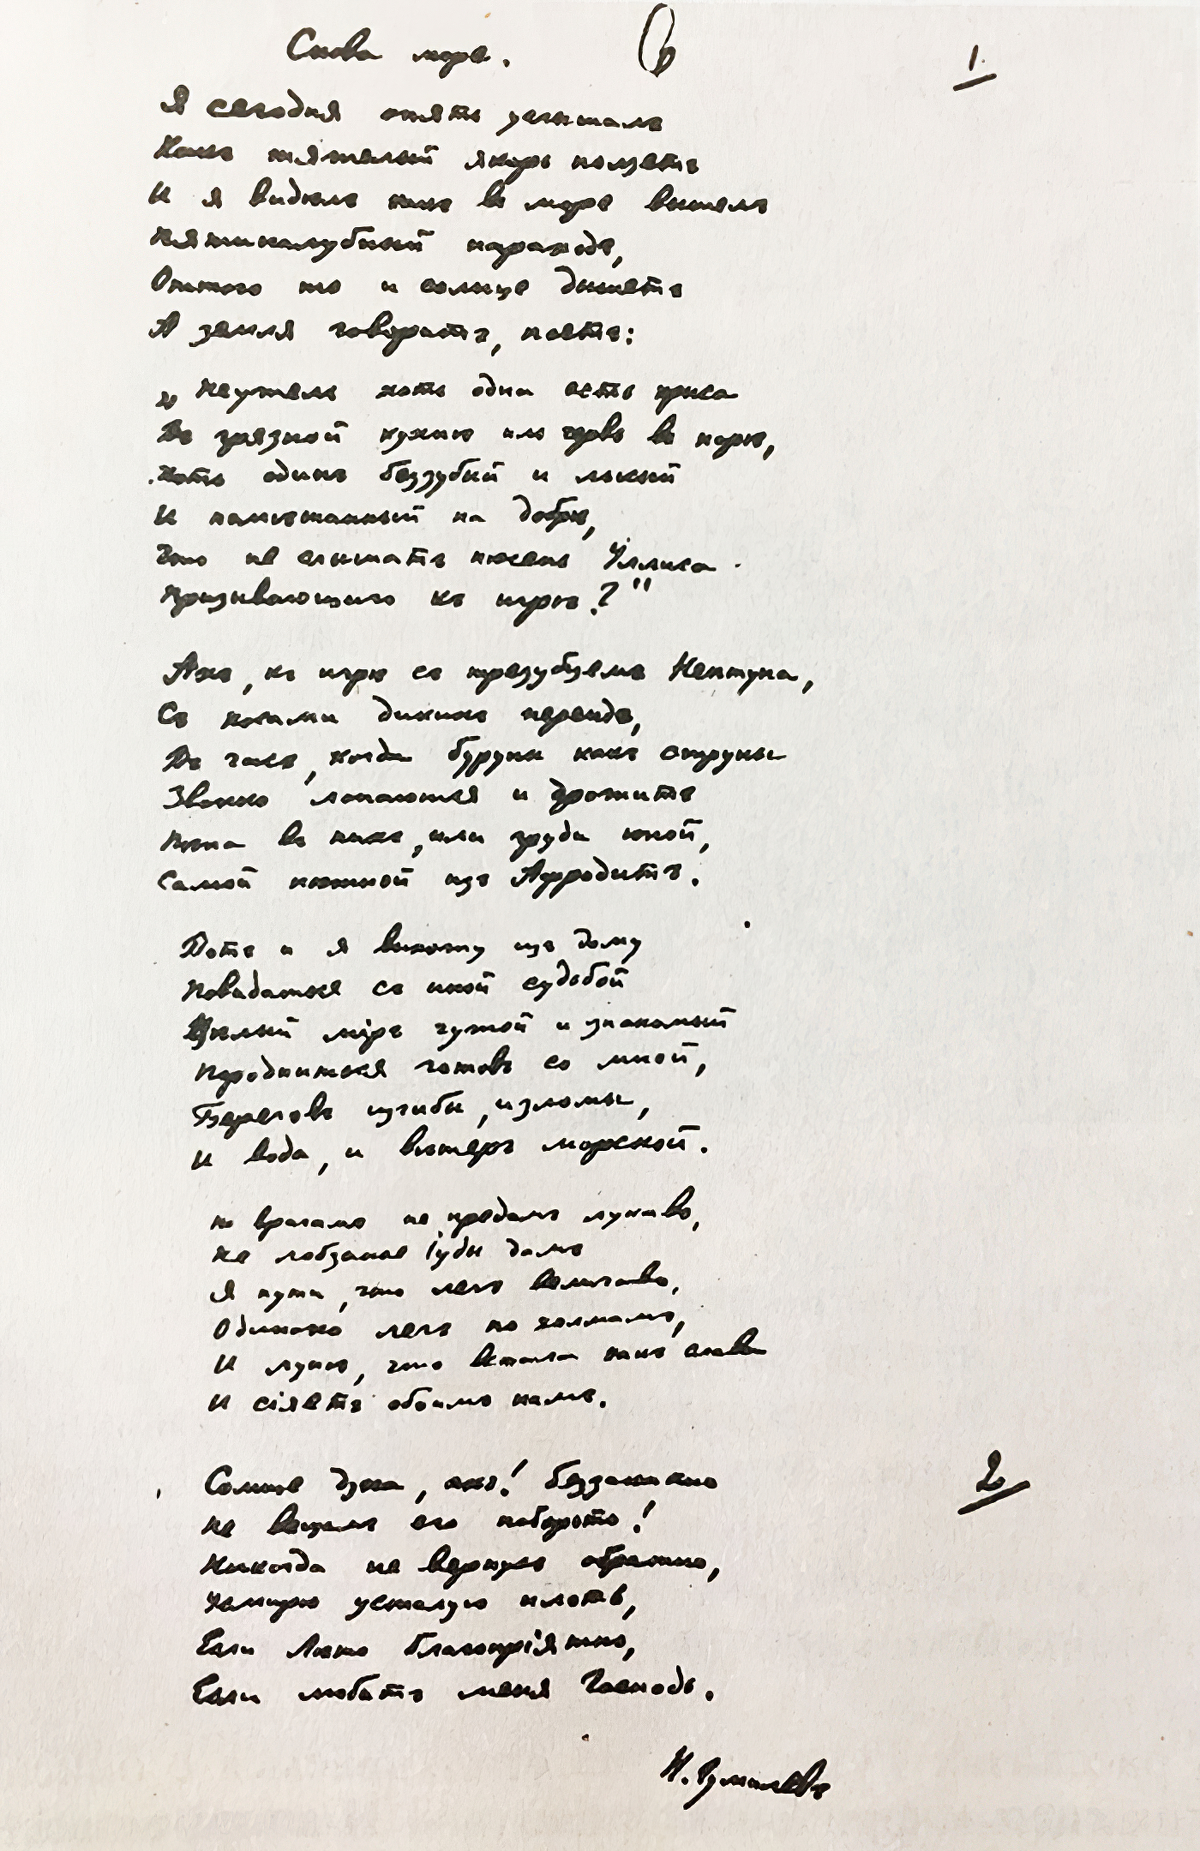 Снова море.
1.
Я сегодня опять услышалъ
Какъ тяжелый якорь ползетъ
И я видѣлъ какъ въ море вышелъ
Пятипалубный пароходъ,
Оттого то и солнце дышетъ
А земля говоритъ, поетъ:
„Неужель хоть одна есть крыса
Въ грязной кухнѣ иль червь въ норѣ,
Хоть одинъ беззубый и лысый
И помѣшанный на добрѣ,
Что не слышатъ пѣсень Уллиса
Призывающаго къ игрѣ?"
Ахъ, къ игрѣ съ трезубцемъ Нептуна,
Съ косами дикихъ нереидъ,
Въ часъ, когда буруны какъ струны
Звонко лопаются и дрожитъ
Пѣна въ нихъ, или груди юной,
Самой нѣжной изъ Афродитъ.
Вотъ и я выхожу изъ дому
Повидаться съ иной судьбой
Цѣлый міръ чужой и знакомый
Породниться готовъ со мной,
Береговъ изгибы, изломы,
И вода, и вѣтеръ морской.
Но врагамъ не предамъ лукаво,
Не лобзанье Іуды дамъ
Я пути, что легъ величаво,
Одиноко легъ по холмамъ,
И лунѣ, что встала какъ слава
И сіяетъ обоимъ намъ.
2
Солнце духа, ахъ! беззакатно
Не вещамъ его побороть!
Никогда не вернусь обратно,
Усмирю усталую плоть,
Если Лѣто благопріятно,
Если любитъ меня Господь.
Н. Гумилевъ